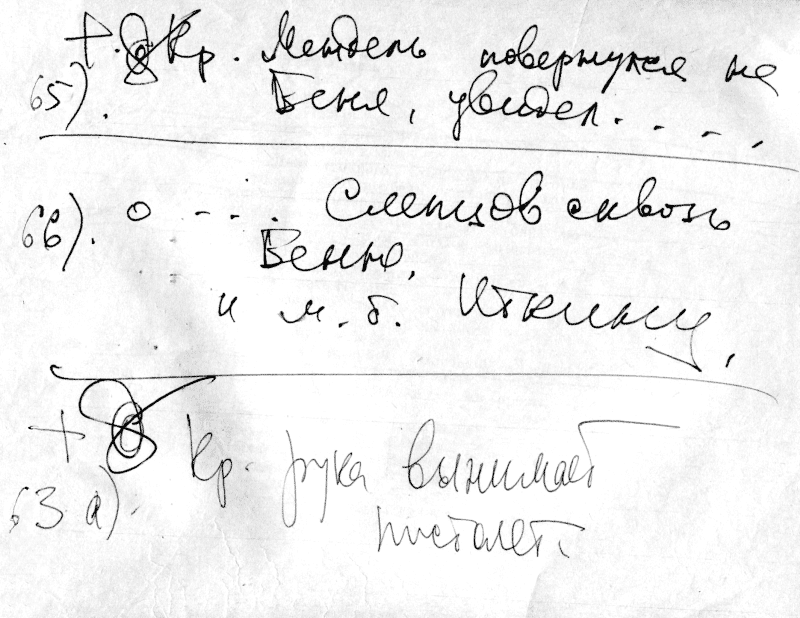 +. Кр. Мендель повернулся на
65). Беня, увидел. . . .
66). о - . . Слепцов сквозь
Беню,
и м. б. Иткину,
+ Кр. рука вынимает
63 а). пистолет.